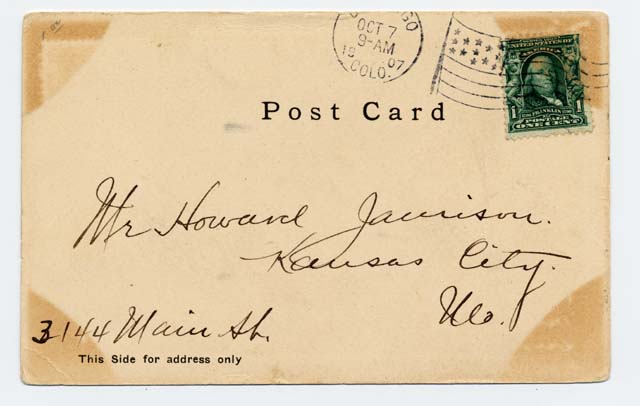 OCT 7
9-AM
19 07
COLO.
UNITED STATES OF
AMERICA
1 1
POSTAGE
ONE CENT
Post Card
Mr Howard Jamison.
Kansas City.
Mo.
3144 Main St.
This Side for address only